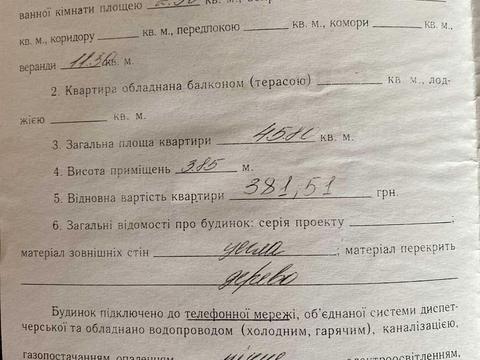 ванної кімнати площею 2.50 кв. м,
кв. м, коридору кв. м., передпокою кв. м., комори кв. м.,
веранди 11.30 кв. м.
2. Квартира обладнана балконом (терасою) кв. м, лод-
жією кв. м.
3. Загальна площа квартири 45.80 кв. м.
4. Висота приміщень 3.85 м.
5. Відновна вартість квартири 381,51 грн.
6. Загальні відомості про будинок: серія проекту ;
матеріал зовнішніх стін цегла ; матеріал перекрить
дерево
Будинок підключено до телефонної мережі, об'єднаної системи диспет-
черської та обладнано водопроводом (холодним, гарячим), каналізацією,
газопостачанням, опаленням пічне електроосвітленням,